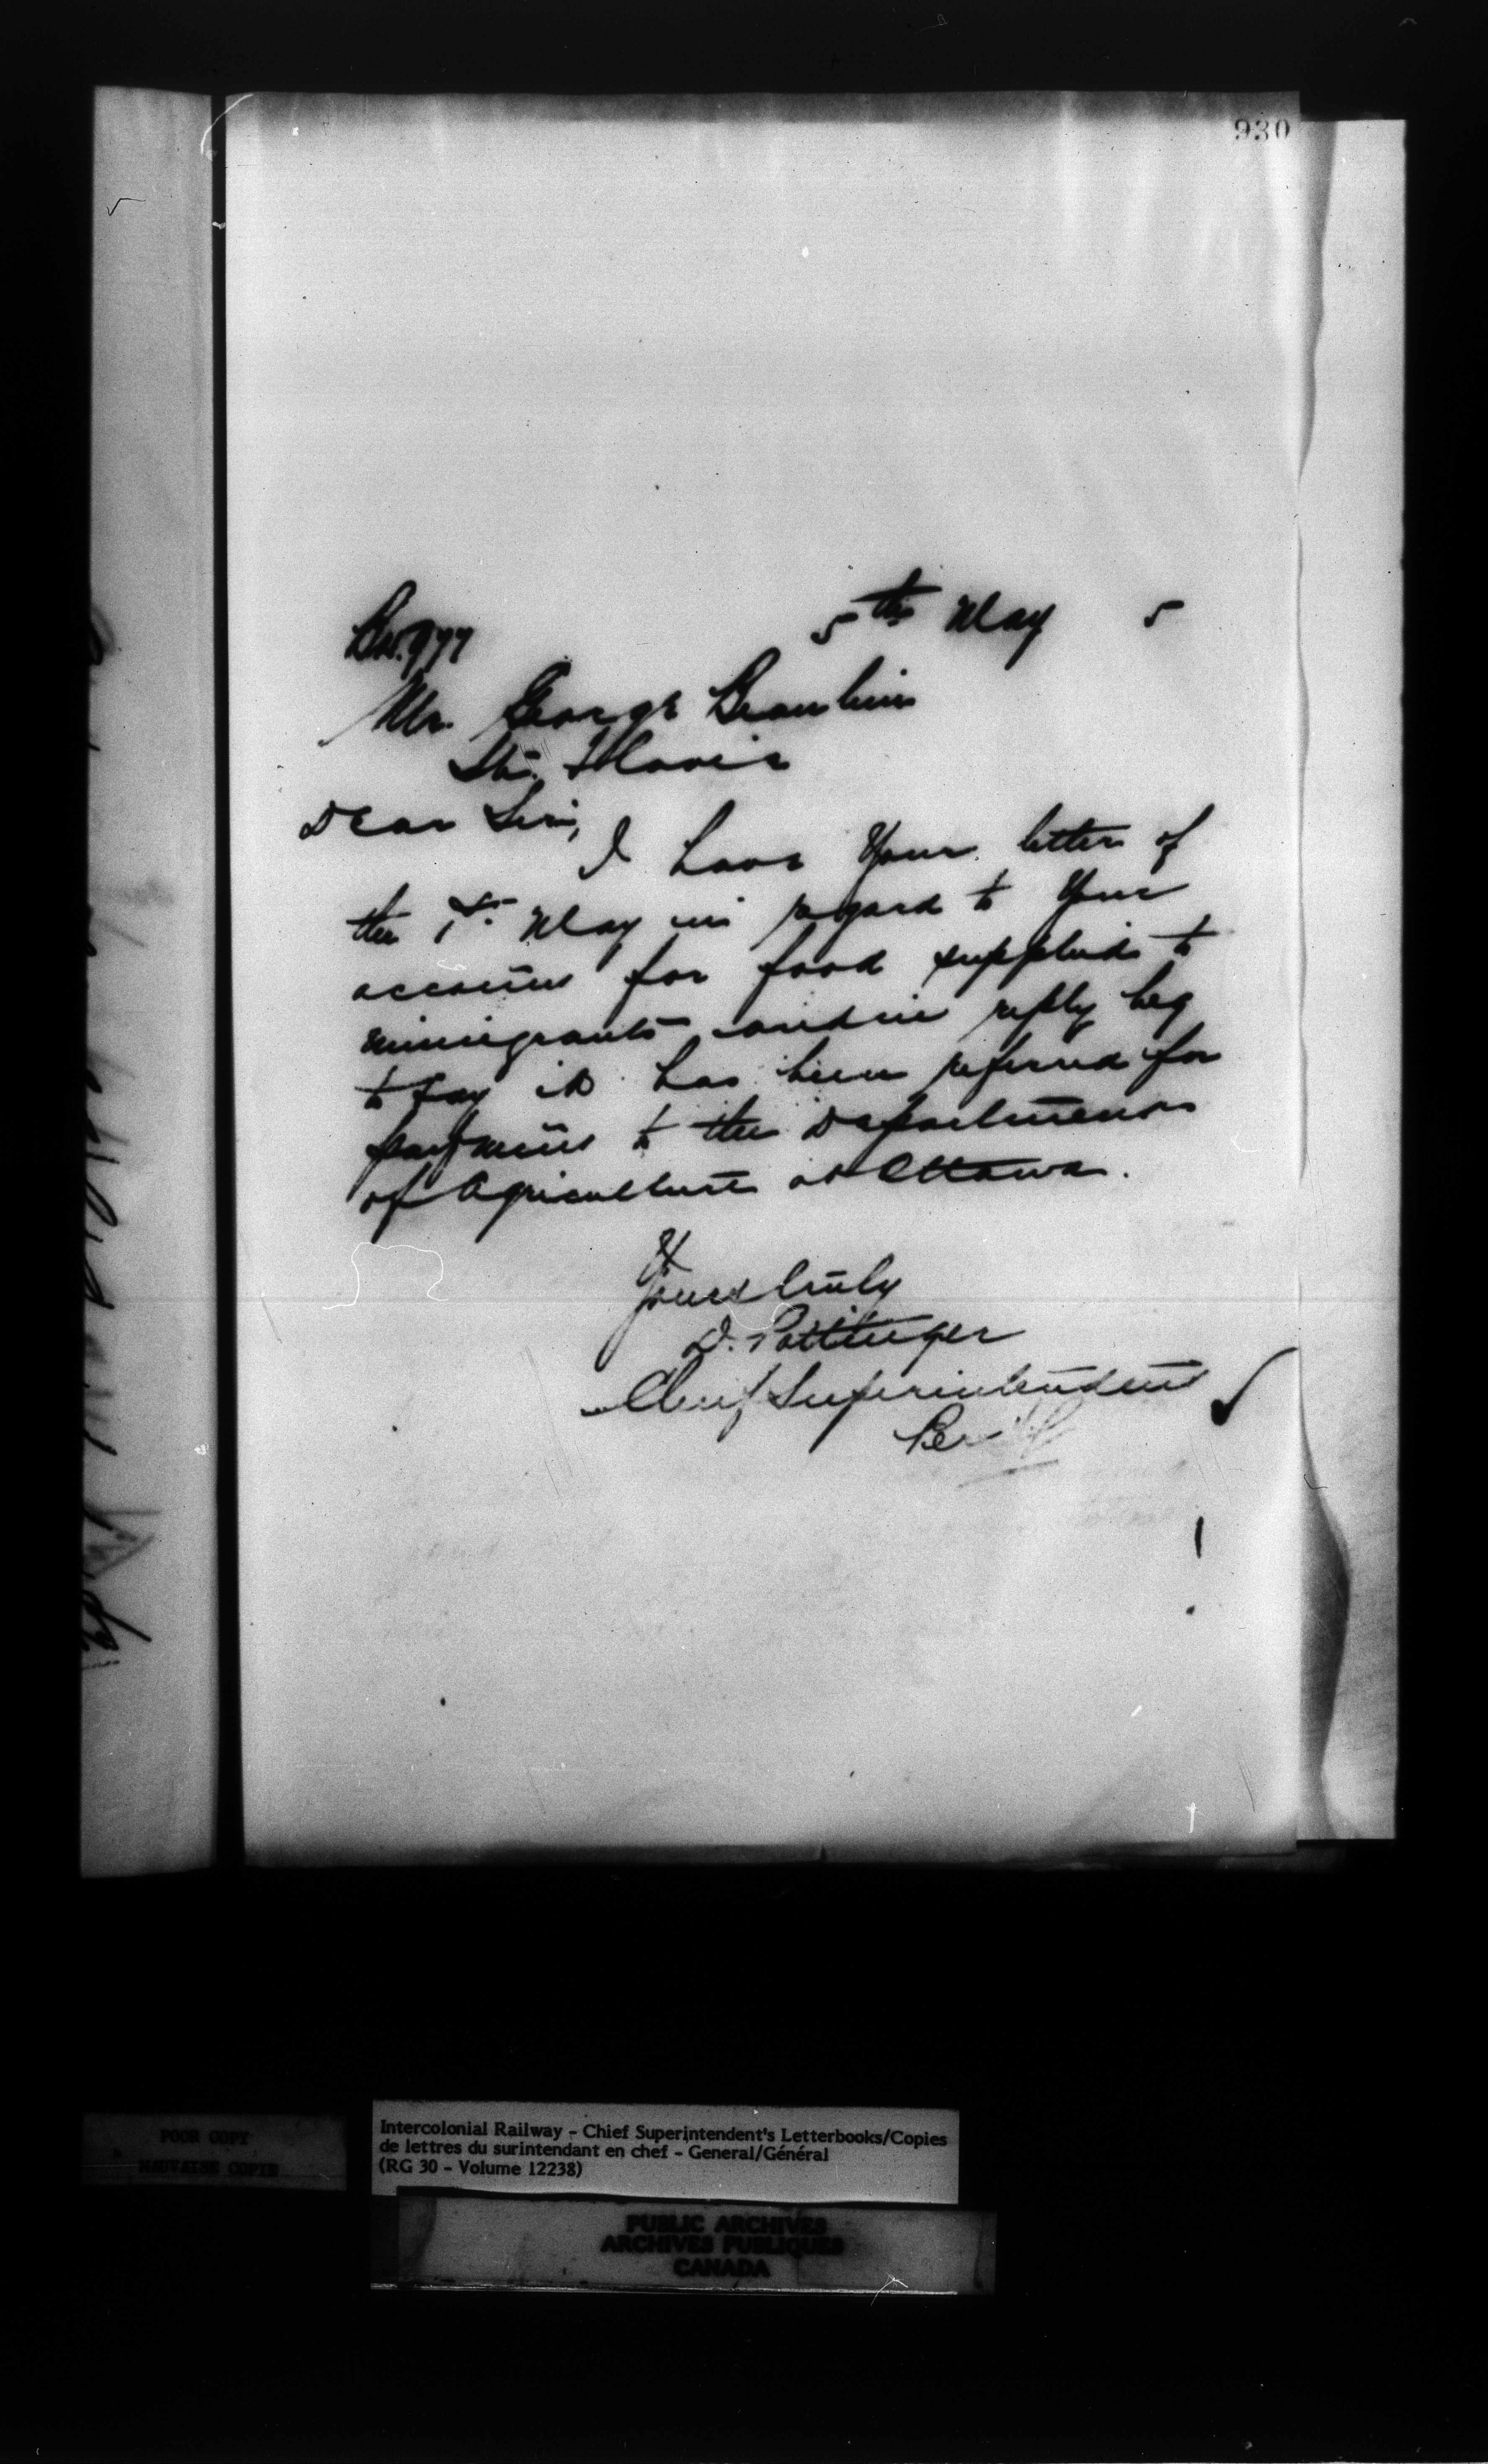 930
5th May 5
Mr. George Beaulieu
Ste. Flavie
Dear Sir,
I have your letter of
the 1st. May in regard to your
account for food supplied to
immigrants and in reply beg
to say it has been referred for
payment to the Department
of Agriculture at Ottawa.
Yours truly
D. Pottinger
Chief Superintendent
Per
POOR COPY
MAUVAISE COPIE
Intercolonial Railway - Chief Superintendent's Letterbooks/Copies
de lettres du surintendant en chef - General/Général
(RG 30 - Volume 12238)
PUBLIC ARCHIVES
ARCHIVES PUBLIQUES
CANADA